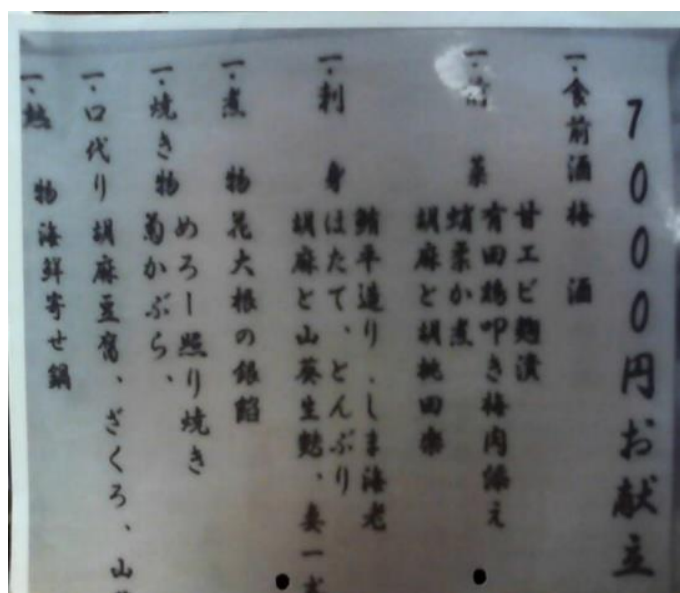 7000円お献立
一、食前酒 梅 酒
一、前 菜
甘エビ麹漬
有田鶏叩き梅肉添え
蛸柔か煮
胡麻と胡桃田楽
一、刺 身
鮪平造り、しま海老
ほたて、とんぶり
胡麻と山葵生麩、妻一式
一、煮 物 花大根の銀餡
一、焼き物
めろー照り焼き
菊かぶら、
一、口代り 胡麻豆腐、ざくろ、山
一、 物 海鮮寄せ鍋